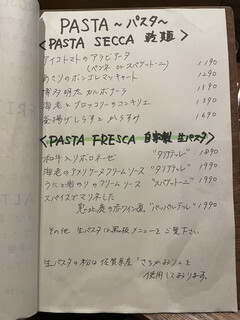 PASTA ~パスタ~
<PASTA SECCA 乾麺>
アイコトマトのアラビアータ
(ペンネ or スパゲットーニ) 1190
あさりのボンゴレマッキャート 1290
博多明太カルボナーラ 1890
海老とブロッコリーのコンキリエ 1390
釜揚げしらすとからすみ 1690
<PASTA FRESCA 自家製 生パスタ>
和牛入りボロネーゼ "タリアテッレ" 1890
海老のアメリケーヌクリームソース "タリアテッレ" 1990
うにと渚のりのクリームソース "スパゲットーニ" 1990
スパイスでマリネした
恵比鹿の赤ワイン煮 "パッパルデッレ" 1990
その他 生パスタは黒板メニューをご覧下さい。
生パスタの粉は佐賀県産「さちかおり」を
使用しております。